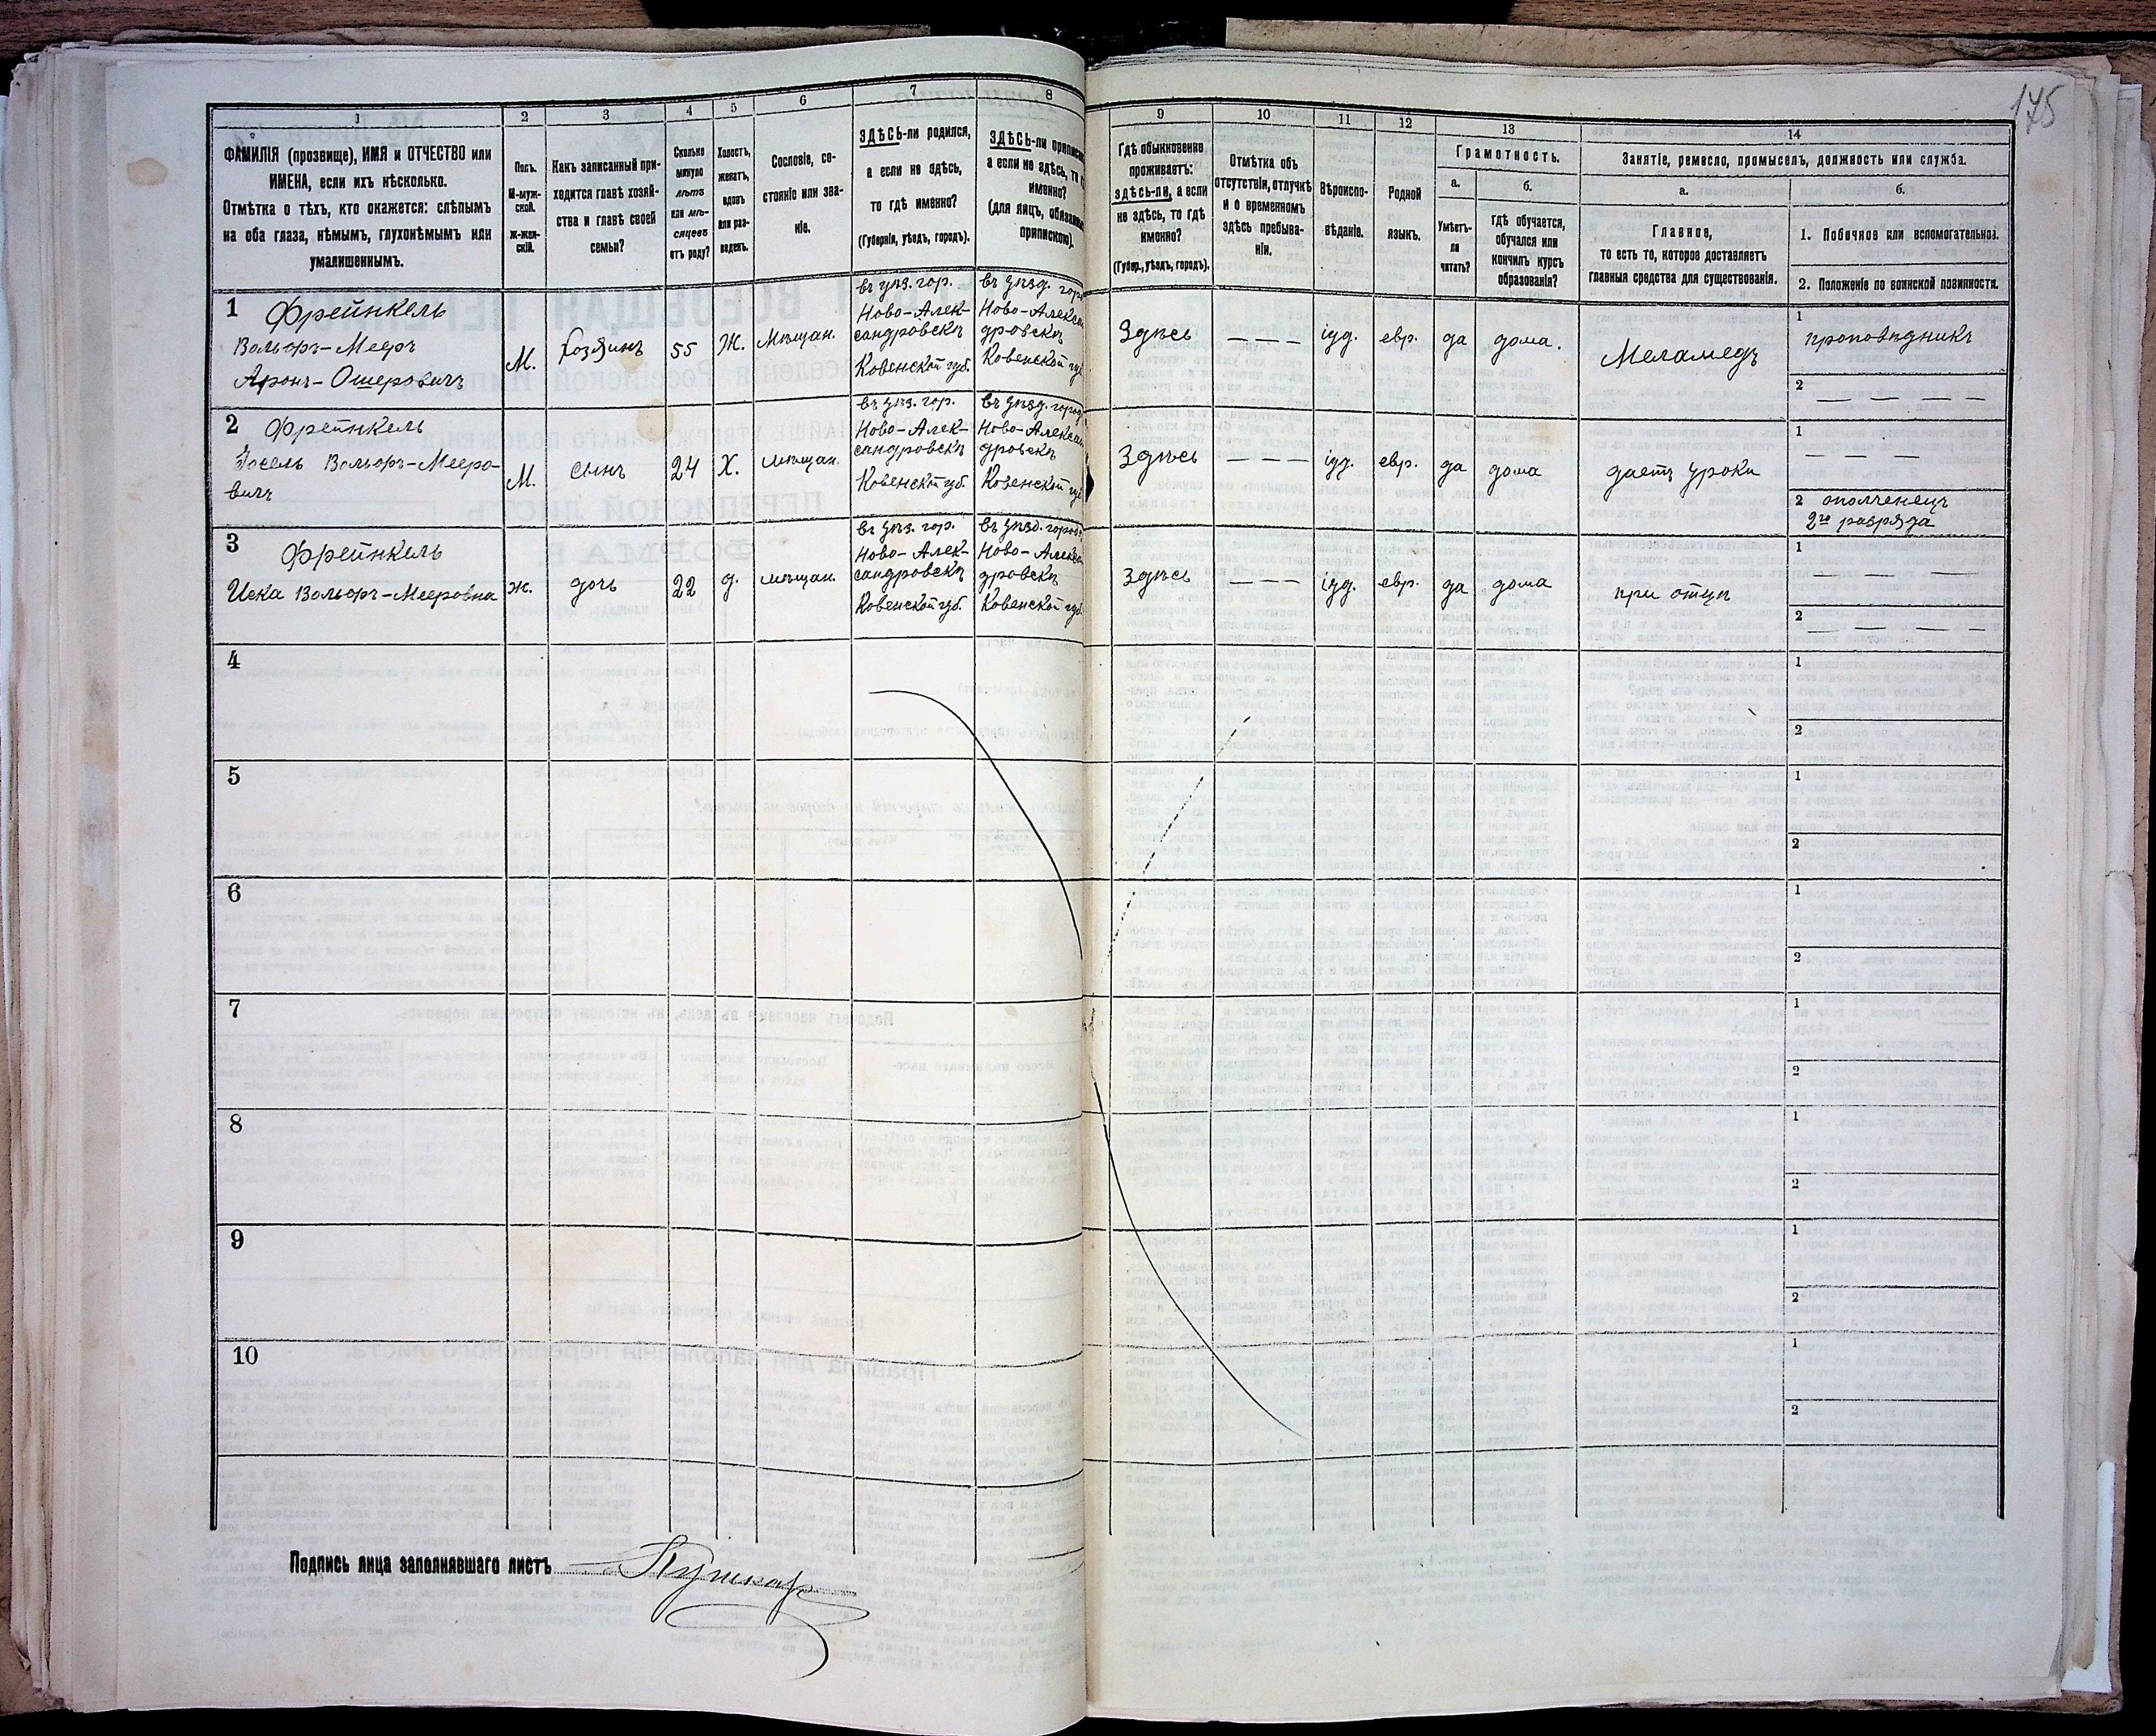 175
1
2
3
4
5
6
7
8
9
10
11
12
13
14
ФАМИЛІЯ (прозвище), ИМЯ и ОТЧЕСТВО или
ИМЕНА, если ихъ нѣсколько.
Отмѣтка о тѣхъ, кто окажется: слѣпымъ
на оба глаза, нѣмымъ, глухонѣмымъ или
умалишеннымъ.
Полъ.
М-муж-
ской.
Ж-жен-
скій.
Какъ записанный при-
ходится главѣ хозяй-
ства и главѣ своей
семьи?
Сколько
минуло
лѣтъ
или мѣ-
сяцевъ
отъ роду?
Холостъ,
женатъ,
вдовъ
или раз-
веденъ.
Сословіе, со-
стояніе или зва-
ніе.
ЗДѢСЬ-ли родился,
а если не здѣсь,
то гдѣ именно?
(Губернія, уѣздъ, городъ).
ЗДѢСЬ-ли
а если не здѣсь, то
именно?
(для лицъ,
припискою).
Гдѣ обыкновенно
проживаетъ:
здѣсь-ли, а если
не здѣсь, то гдѣ
именно?
(Губер., уѣздъ, городъ).
Отмѣтка объ
отсутствіи, отлучкѣ
и о временномъ
здѣсь пребыва-
ніи.
Вѣроиспо-
вѣданіе.
Родной
языкъ.
Грамотность.
а.
б.
Умѣетъ-
ли
читать?
гдѣ обучается,
обучался или
кончилъ курсъ
образованія?
Занятіе, ремесло, промыселъ, должность или служба.
а.
б.
Главное,
то есть то, которое доставляетъ
главныя средства для существованія.
1. Побочное или вспомогательное.
2. Положеніе по воинской повинности.
1 Фрейнкель
Вольфъ-Мееръ
Аронъ-Ошеровичъ
М.
хозяинъ
55
Ж.
Мѣщан.
въ уѣз. гор.
Ново-Алек-
сандровскѣ
Ковенской губ.
въ уѣзд. гор
Ново-Алекса
дровскѣ
Ковенской гу
Здѣсь
— — —
іуд.
евр.
да
дома.
Меламедъ
1
проповѣдникъ
2
— — — —
2 Фрейнкель
Іосель Вольфъ-Мееро-
вичъ
М.
сынъ
24
Х.
мѣщан.
въ уѣз. гор.
Ново-Алек-
сандровскѣ
Ковенской губ
въ уѣзд. город
Ново-Алексан
дровскѣ
Ковенской гу
Здѣсь
— — —
іуд.
евр.
да
дома
даетъ уроки
1
— — —
2 ополченецъ
2го разряда
3 Фрейнкель
Иска Вольфъ-Мееровна
ж.
дочь
22
д.
мѣщан.
въ уѣз. гор.
Ново-Алек-
сандровскѣ
Ковенской губ.
въ уѣзд. город
Ново-Алекса
дровскѣ
Ковенской губ
Здѣсь
— — —
іуд.
евр.
да
дома
при отцѣ
1
— — —
2
— — — —
4
1
2
5
1
2
6
1
2
7
1
2
8
1
2
9
1
2
10
1
2
Подпись лица заполнявшаго листъ